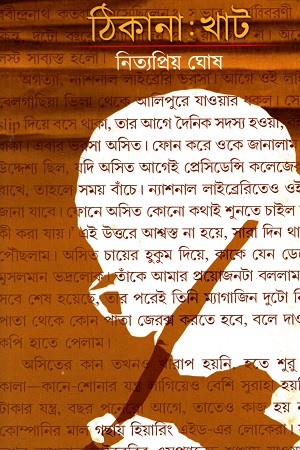 ঠিকানা : খাট
নিত্যপ্রিয় ঘোষ
সাব্যস্ত হলো।
অগত্যা, ন্যাশনাল লাইব্রেরি ভরসা। আগে ওই
বেলগাছিয়া ভিলা থেকে আলিপুরে যাওয়ার ধকল।
slip দিয়ে বসে থাকা, তার আগে দৈনিক সদস্য হওয়া,
। এবার ভরসা অসিত। ফোন করে ওকে জানালাম
উদ্দেশ্য ছিল, যদি অসিত আগেই প্রেসিডেন্সি কলেজের
রাখে, তাহলে সময় বাঁচে। ন্যাশনাল লাইব্রেরিতেও ওই
জানা যাবে। ফোনে অসিত কোনো কথাই শুনতে চাইল
কী করা যায়।' এই উত্তরে আশ্বস্ত না হয়ে, সারা দিন
পৌঁছলাম। অসিত চায়ের হুকুম দিয়ে, কাকে যেন ডে
মুসলমান ভদ্রলোক। তাঁকে আমার প্রয়োজনটা বললাম
সবে শেষ হয়েছে, তার পরেই তিনি ম্যাগাজিন দুটো নি
পাতা থেকে কোন পাতা জেরক্স করতে হবে, বলে দাও
কপি হাতে পেলাম।
অসিতের কান তখনও খারাপ হয়নি, হতে শুরু
কালা—কানে-শোনার যন্ত্র লাগিয়েও বেশি সুরাহা হয়
টাকার যন্ত্র, বছর পনেরো আগে, তাতেও কাজ হয়
কোম্পানির মাল গছায় হিয়ারিং এইড-এর লোকেরা।